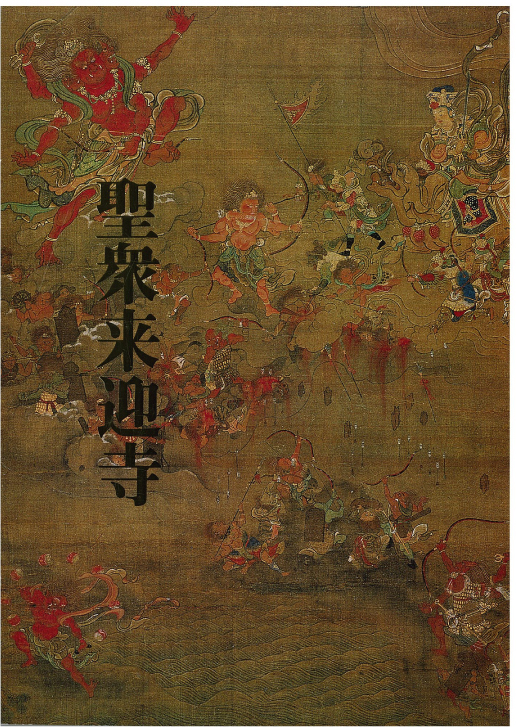 聖衆来迎寺